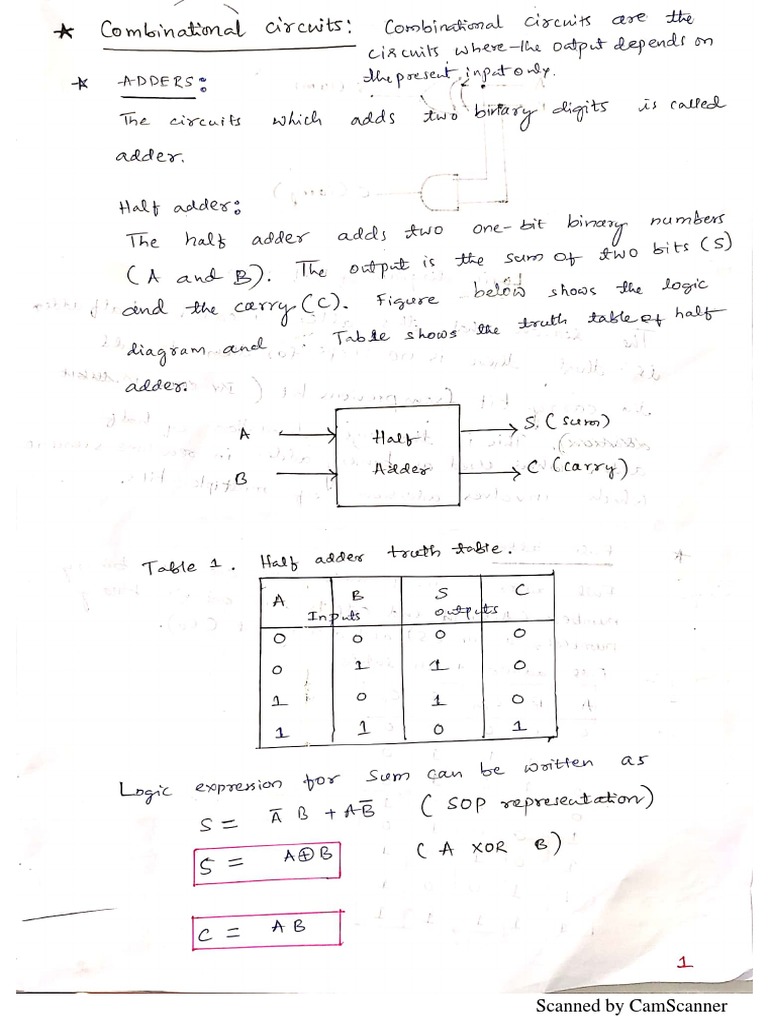 * Combinational circuits: Combinational circuits are the
circuits where the output depends on
the present input only.
* ADDERS:
The circuits which adds two binary digits is called
adder.
Half adder:
The half adder adds two one-bit binary numbers
(A and B). The output is the sum of two bits (S)
and the carry (C). Figure below shows the logic
diagram and Table shows the truth table of half
adder.
A
B
Half
Adder
S (sum)
C (carry)
Table 1. Half adder truth table.
A B S C
Inputs Outputs
0 0 0 0
0 1 1 0
1 0 1 0
1 1 0 1
Logic expression for Sum can be written as
S = A̅ B + AB̅ (SOP representation)
S = A⊕B (A XOR B)
C = AB
1
Scanned by CamScanner